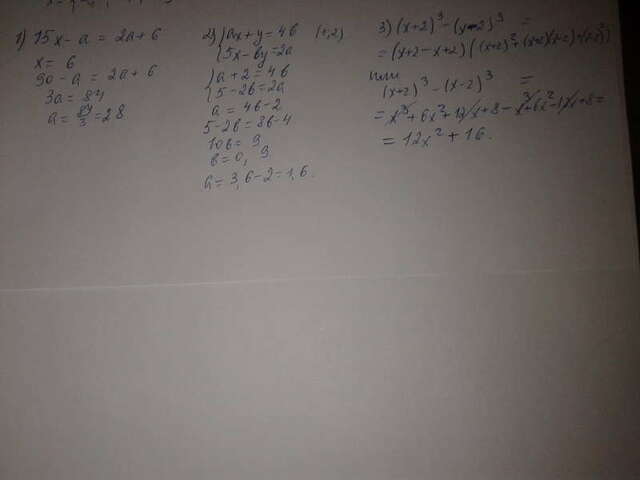 1) 15x - a = 2a + 6
x = 6
90 - a = 2a + 6
3a = 84
a = 84/3 = 28
2) { ax + y = 4b (1,2)
{ 5x - by = 2a
{ a + 2 = 4b
{ 5 - 2b = 2a
a = 4b - 2
5 - 2b = 8b - 4
10b = 9
b = 0,9
a = 3,6 - 2 = 1,6.
3) (x+2)³ - (x-2)³ =
= (x+2-x+2)((x+2)²+(x+2)(x-2)+(x-2)²)
или
(x+2)³ - (x-2)³ =
= x³ + 6x² + 12x + 8 - x³ + 6x² - 12x + 8 =
= 12x² + 16.